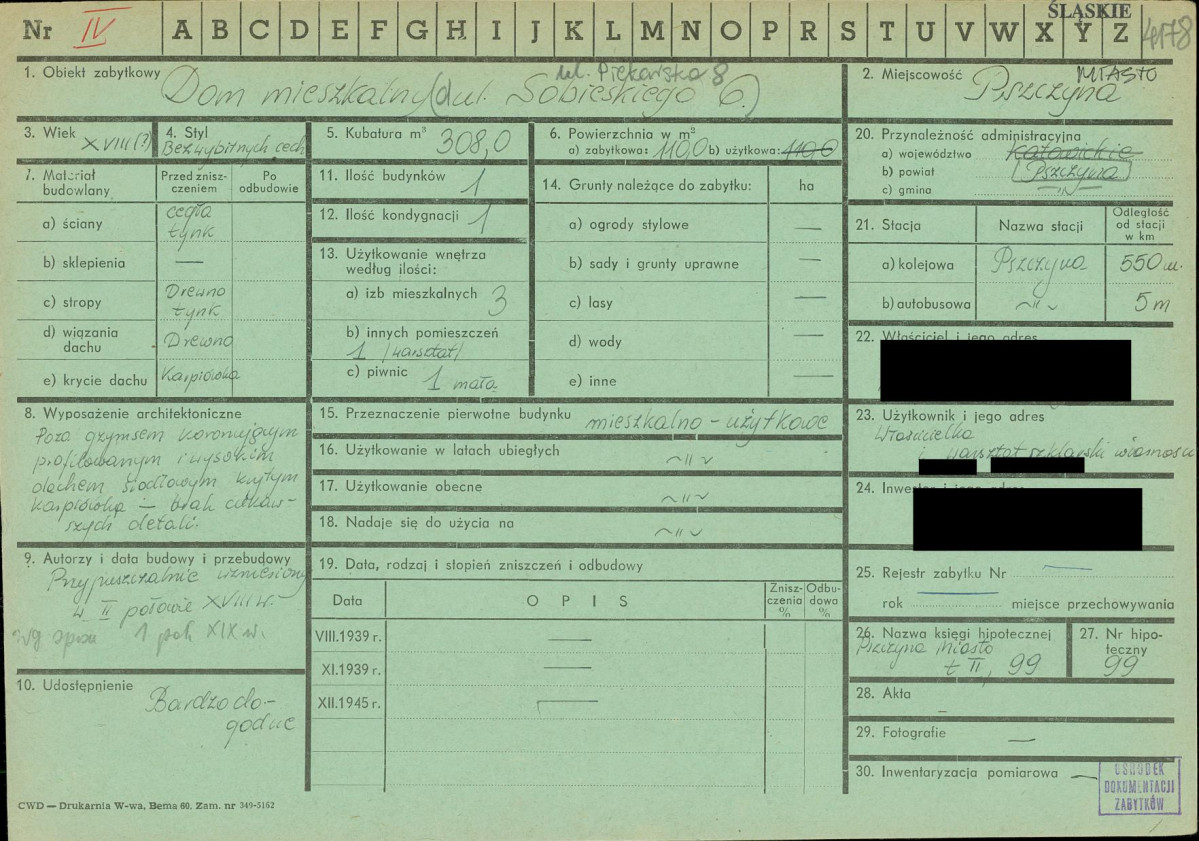 Nr IV A B C D E F G H I J K L M N O P R S T U V W X Y Z
ŚLĄSKIE
4178
1. Obiekt zabytkowy
ul. Piekarska 8
Dom mieszkalny (ul. Sobieskiego 6.)
2. Miejscowość
MIASTO
Pszczyna
3. Wiek XVIII (?)
4. Styl
Bez wybitnych cech
5. Kubatura m³ 308,0
6. Powierzchnia w m²
a) zabytkowa: 110,0 b) użytkowa: 110,0
20. Przynależność administracyjna
a) województwo katowickie
b) powiat Pszczyna
c) gmina –"–
7. Materiał budowlany
Przed zniszczeniem
Po odbudowie
a) ściany cegła tynk
b) sklepienia —
c) stropy Drewno tynk
d) wiązania dachu Drewno
e) krycie dachu Karpiówka
11. Ilość budynków 1
12. Ilość kondygnacji 1
13. Użytkowanie wnętrza
według ilości:
a) izb mieszkalnych 3
b) innych pomieszczeń
1 /warsztat/
c) piwnic 1 mała
14. Grunty należące do zabytku: ha
a) ogrody stylowe —
b) sady i grunty uprawne —
c) lasy —
d) wody —
e) inne —
21. Stacja
Nazwa stacji
Odległość
od stacji
w km
a) kolejowa Pszczyna 550 m.
b) autobusowa –"– 5 m
22. Właściciel i jego adres
8. Wyposażenie architektoniczne
Poza gzymsem koronującym
profilowanym i wysokim
dachem siodłowym krytym
karpiówką — brak ciekaw-
szych detali.
15. Przeznaczenie pierwotne budynku mieszkalno – użytkowe
16. Użytkowanie w latach ubiegłych –"–
17. Użytkowanie obecne –"–
18. Nadaje się do użycia na –"–
23. Użytkownik i jego adres
Właścicielka
i warsztat szklarski
24. Inwestor i jego adres
9. Autorzy i data budowy i przebudowy
Przypuszczalnie wzniesiony
w II połowie XVIII w.
wg spisu 1 poł. XIX w.
19. Data, rodzaj i stopień zniszczeń i odbudowy
Data
OPIS
Znisz-
czenia
%
Odbu-
dowa
%
VIII.1939 r. —
XI.1939 r. —
XII.1945 r. —
25. Rejestr zabytku Nr —
rok — miejsce przechowywania
26. Nazwa księgi hipotecznej
Pszczyna Miasto
t II, 99
27. Nr hipo-
teczny
99
10. Udostępnienie
Bardzo do-
godne
28. Akta –
29. Fotografie —
30. Inwentaryzacja pomiarowa —
OŚRODEK
DOKUMENTACJI
ZABYTKÓW
CWD — Drukarnia W-wa, Bema 60. Zam. nr 349-5162